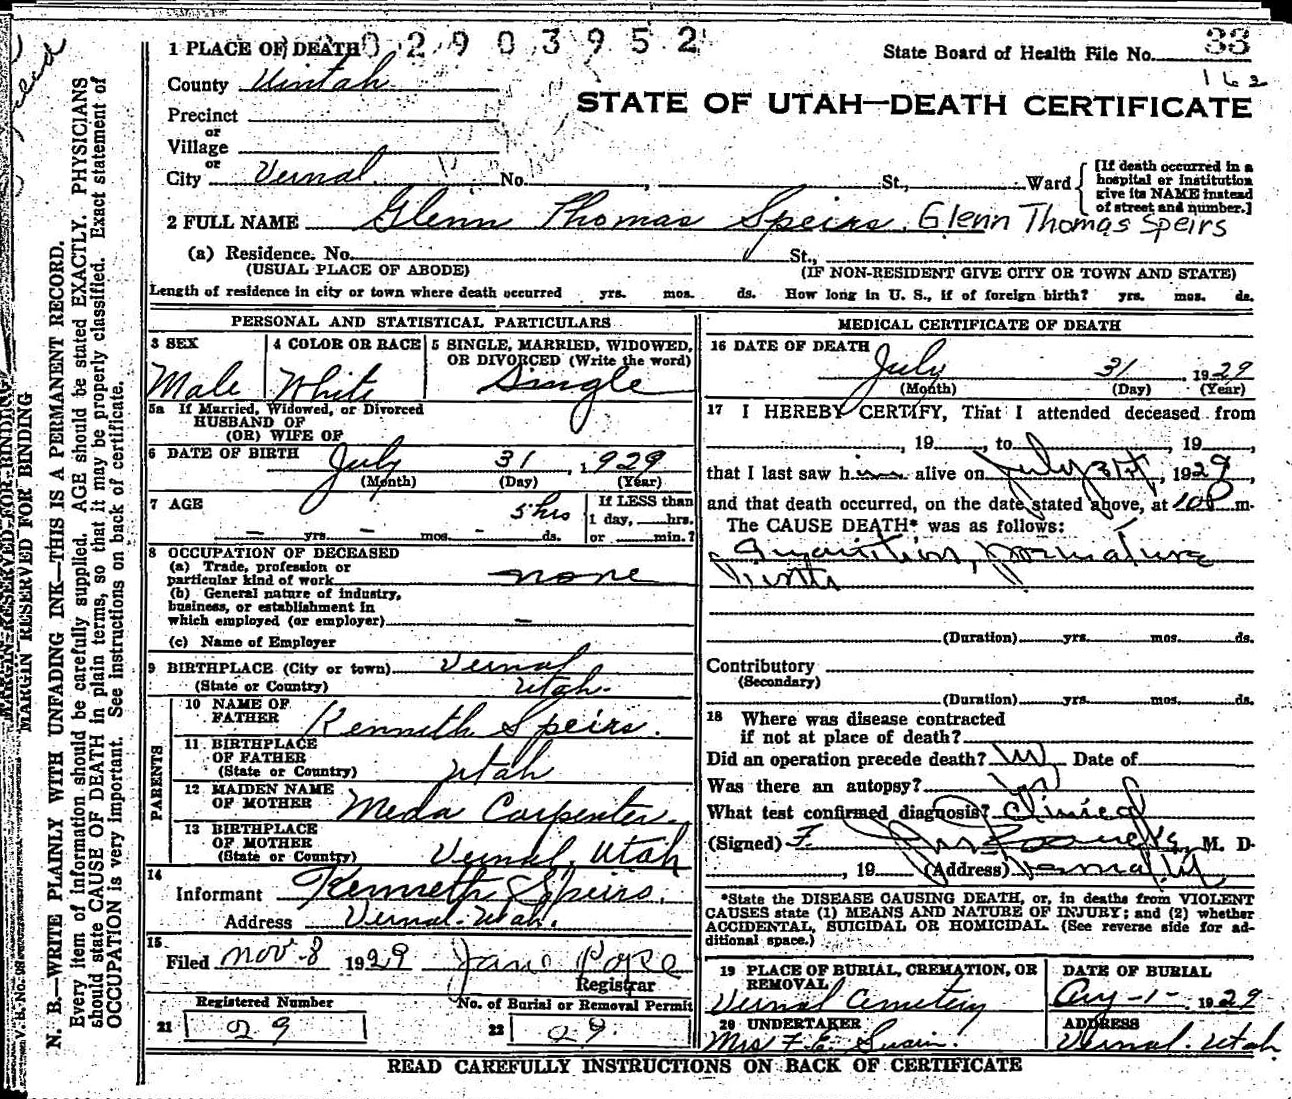 1 PLACE OF DEATH 02903952
State Board of Health File No. 33
162
County Uintah
STATE OF UTAH—DEATH CERTIFICATE
Precinct
or
Village
or
City Vernal No. , St., Ward
[If death occurred in a hospital or institution give its NAME instead of street and number.]
2 FULL NAME Glenn Thomas Speirs. Glenn Thomas Speirs
(a) Residence. No. St.,
(USUAL PLACE OF ABODE) (IF NON-RESIDENT GIVE CITY OR TOWN AND STATE)
Length of residence in city or town where death occurred yrs. mos. ds. How long in U. S., if of foreign birth? yrs. mos. ds.
PERSONAL AND STATISTICAL PARTICULARS
3 SEX
Male
4 COLOR OR RACE
White
5 SINGLE, MARRIED, WIDOWED, OR DIVORCED (Write the word)
Single
5a If Married, Widowed, or Divorced
HUSBAND OF
(OR) WIFE OF
6 DATE OF BIRTH July 31, 1929
(Month) (Day) (Year)
7 AGE 5 hrs
— yrs. — mos. — ds.
If LESS than
1 day, hrs.
or min.?
8 OCCUPATION OF DECEASED
(a) Trade, profession or
particular kind of work none
(b) General nature of industry,
business, or establishment in
which employed (or employer) —
(c) Name of Employer
9 BIRTHPLACE (City or town) Vernal
(State or Country) Utah.
PARENTS
10 NAME OF
FATHER Kenneth Speirs.
11 BIRTHPLACE
OF FATHER
(State or Country) Utah
12 MAIDEN NAME
OF MOTHER Meda Carpenter.
13 BIRTHPLACE
OF MOTHER
(State or Country) Vernal, Utah
14
Informant Kenneth Speirs.
Address Vernal. Utah.
15
Filed Nov. 8 1929 Jane Pope
Registrar
Registered Number
21 29
No. of Burial or Removal Permit
22 29.
MEDICAL CERTIFICATE OF DEATH
16 DATE OF DEATH
July 31 1929
(Month) (Day) (Year)
17 I HEREBY CERTIFY, That I attended deceased from
, 19 , to July 31st, 19
that I last saw him alive on , 1929,
and that death occurred, on the date stated above, at 10 P m.
The CAUSE DEATH* was as follows:
Inanition, premature
birth
(Duration) yrs. mos. ds.
Contributory
(Secondary)
(Duration) yrs. mos. ds.
18 Where was disease contracted
if not at place of death?
Did an operation precede death? Date of
Was there an autopsy?
What test confirmed diagnosis? Clinical
(Signed) F. M. D.
, 19 (Address) Vernal, Ut
*State the DISEASE CAUSING DEATH, or, in deaths from VIOLENT
CAUSES state (1) MEANS AND NATURE OF INJURY; and (2) whether
ACCIDENTAL, SUICIDAL OR HOMICIDAL. (See reverse side for ad-
ditional space.)
19 PLACE OF BURIAL, CREMATION, OR
REMOVAL
Vernal Cemetery
DATE OF BURIAL
Aug-1- 1929
20 UNDERTAKER
Mrs F. E. Swain.
ADDRESS
Vernal. Utah
READ CAREFULLY INSTRUCTIONS ON BACK OF CERTIFICATE
MARGIN RESERVED FOR BINDING
MARGIN RESERVED FOR BINDING
N. B.—WRITE PLAINLY WITH UNFADING INK—THIS IS A PERMANENT RECORD.
Every item of information should be carefully supplied. AGE should be stated EXACTLY. PHYSICIANS
should state CAUSE OF DEATH in plain terms, so that it may be properly classified. Exact statement of
OCCUPATION is very important. See instructions on back of certificate.